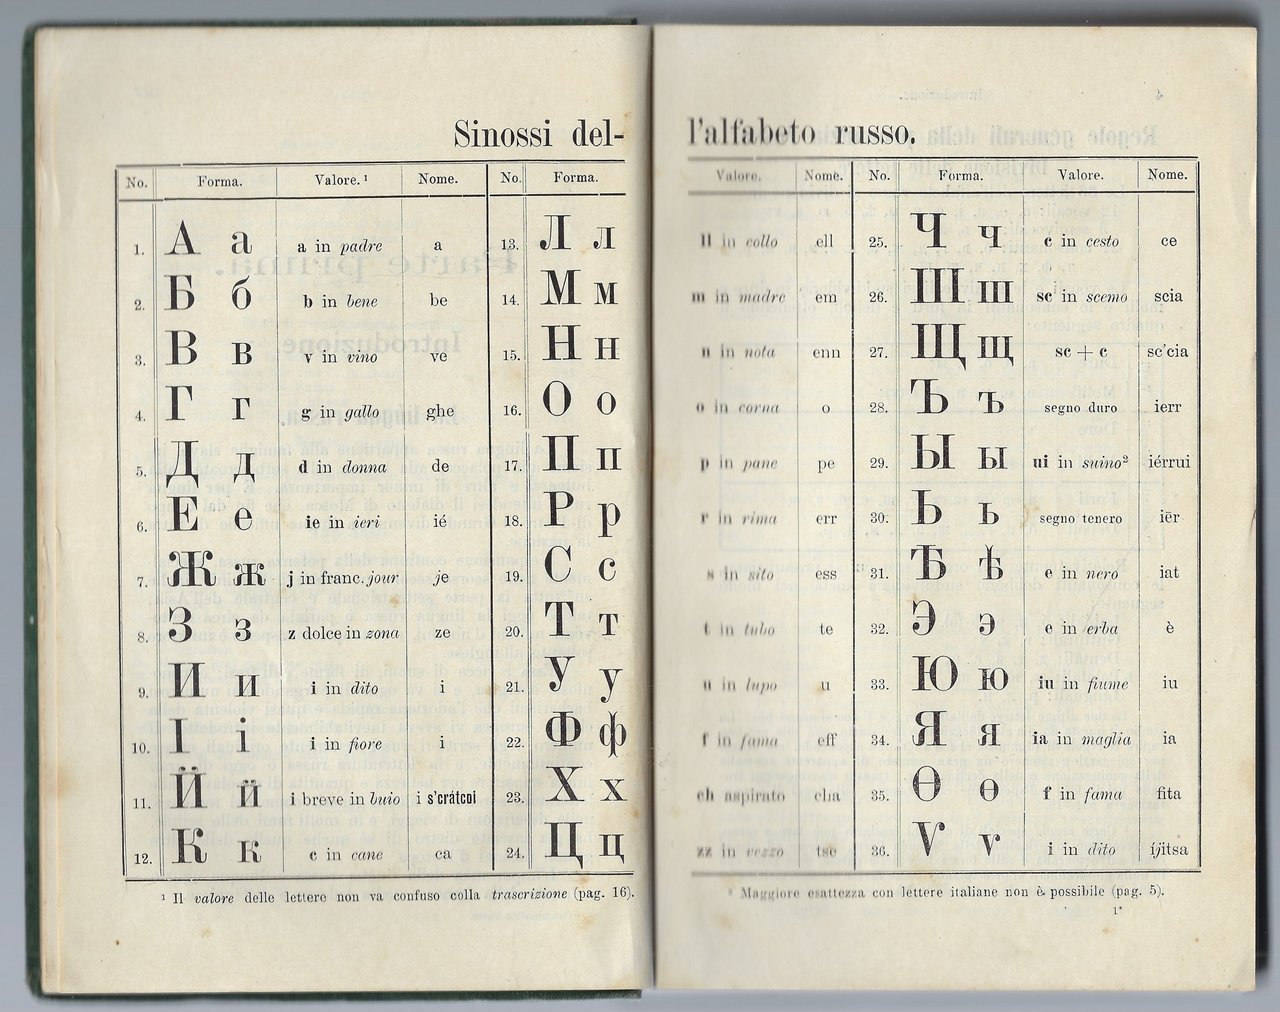 Sinossi del-
No. Forma. Valore.¹ Nome. No. Forma.
1. А а a in padre a 13. Л л
2. Б б b in bene be 14. М м
3. В в v in vino ve 15. Н н
4. Г г g in gallo ghe 16. О о
5. Д д d in donna de 17. П п
6. Е е ie in ieri ié 18. Р р
7. Ж ж j in franc. jour je 19. С с
8. З з z dolce in zona ze 20. Т т
9. И и i in dito i 21. У у
10. І і i in fiore i 22. Ф ф
11. Й й i breve in buio i s'crátcoi 23. Х х
12. К к c in cane ca 24. Ц ц
¹ Il valore delle lettere non va confuso colla trascrizione (pag. 16).
l'alfabeto russo.
Valore. Nome. No. Forma. Valore. Nome.
ll in collo ell 25. Ч ч c in cesto ce
m in madre em 26. Ш ш sc in scemo scia
n in nota enn 27. Щ щ sc + c sc'cia
o in corna o 28. Ъ ъ segno duro ierr
p in pane pe 29. Ы ы ui in suino² iérrui
r in rima err 30. Ь ь segno tenero iēr
s in sito ess 31. Ѣ ѣ e in nero iat
t in tubo te 32. Э э e in erba è
u in lupo u 33. Ю ю iu in fiume iu
f in fama eff 34. Я я ia in maglia ia
ch aspirato cha 35. Ѳ ѳ f in fama fita
zz in vezzo tse 36. Ѵ ѵ i in dito íjitsa
² Maggiore esattezza con lettere italiane non è possibile (pag. 5).
1*